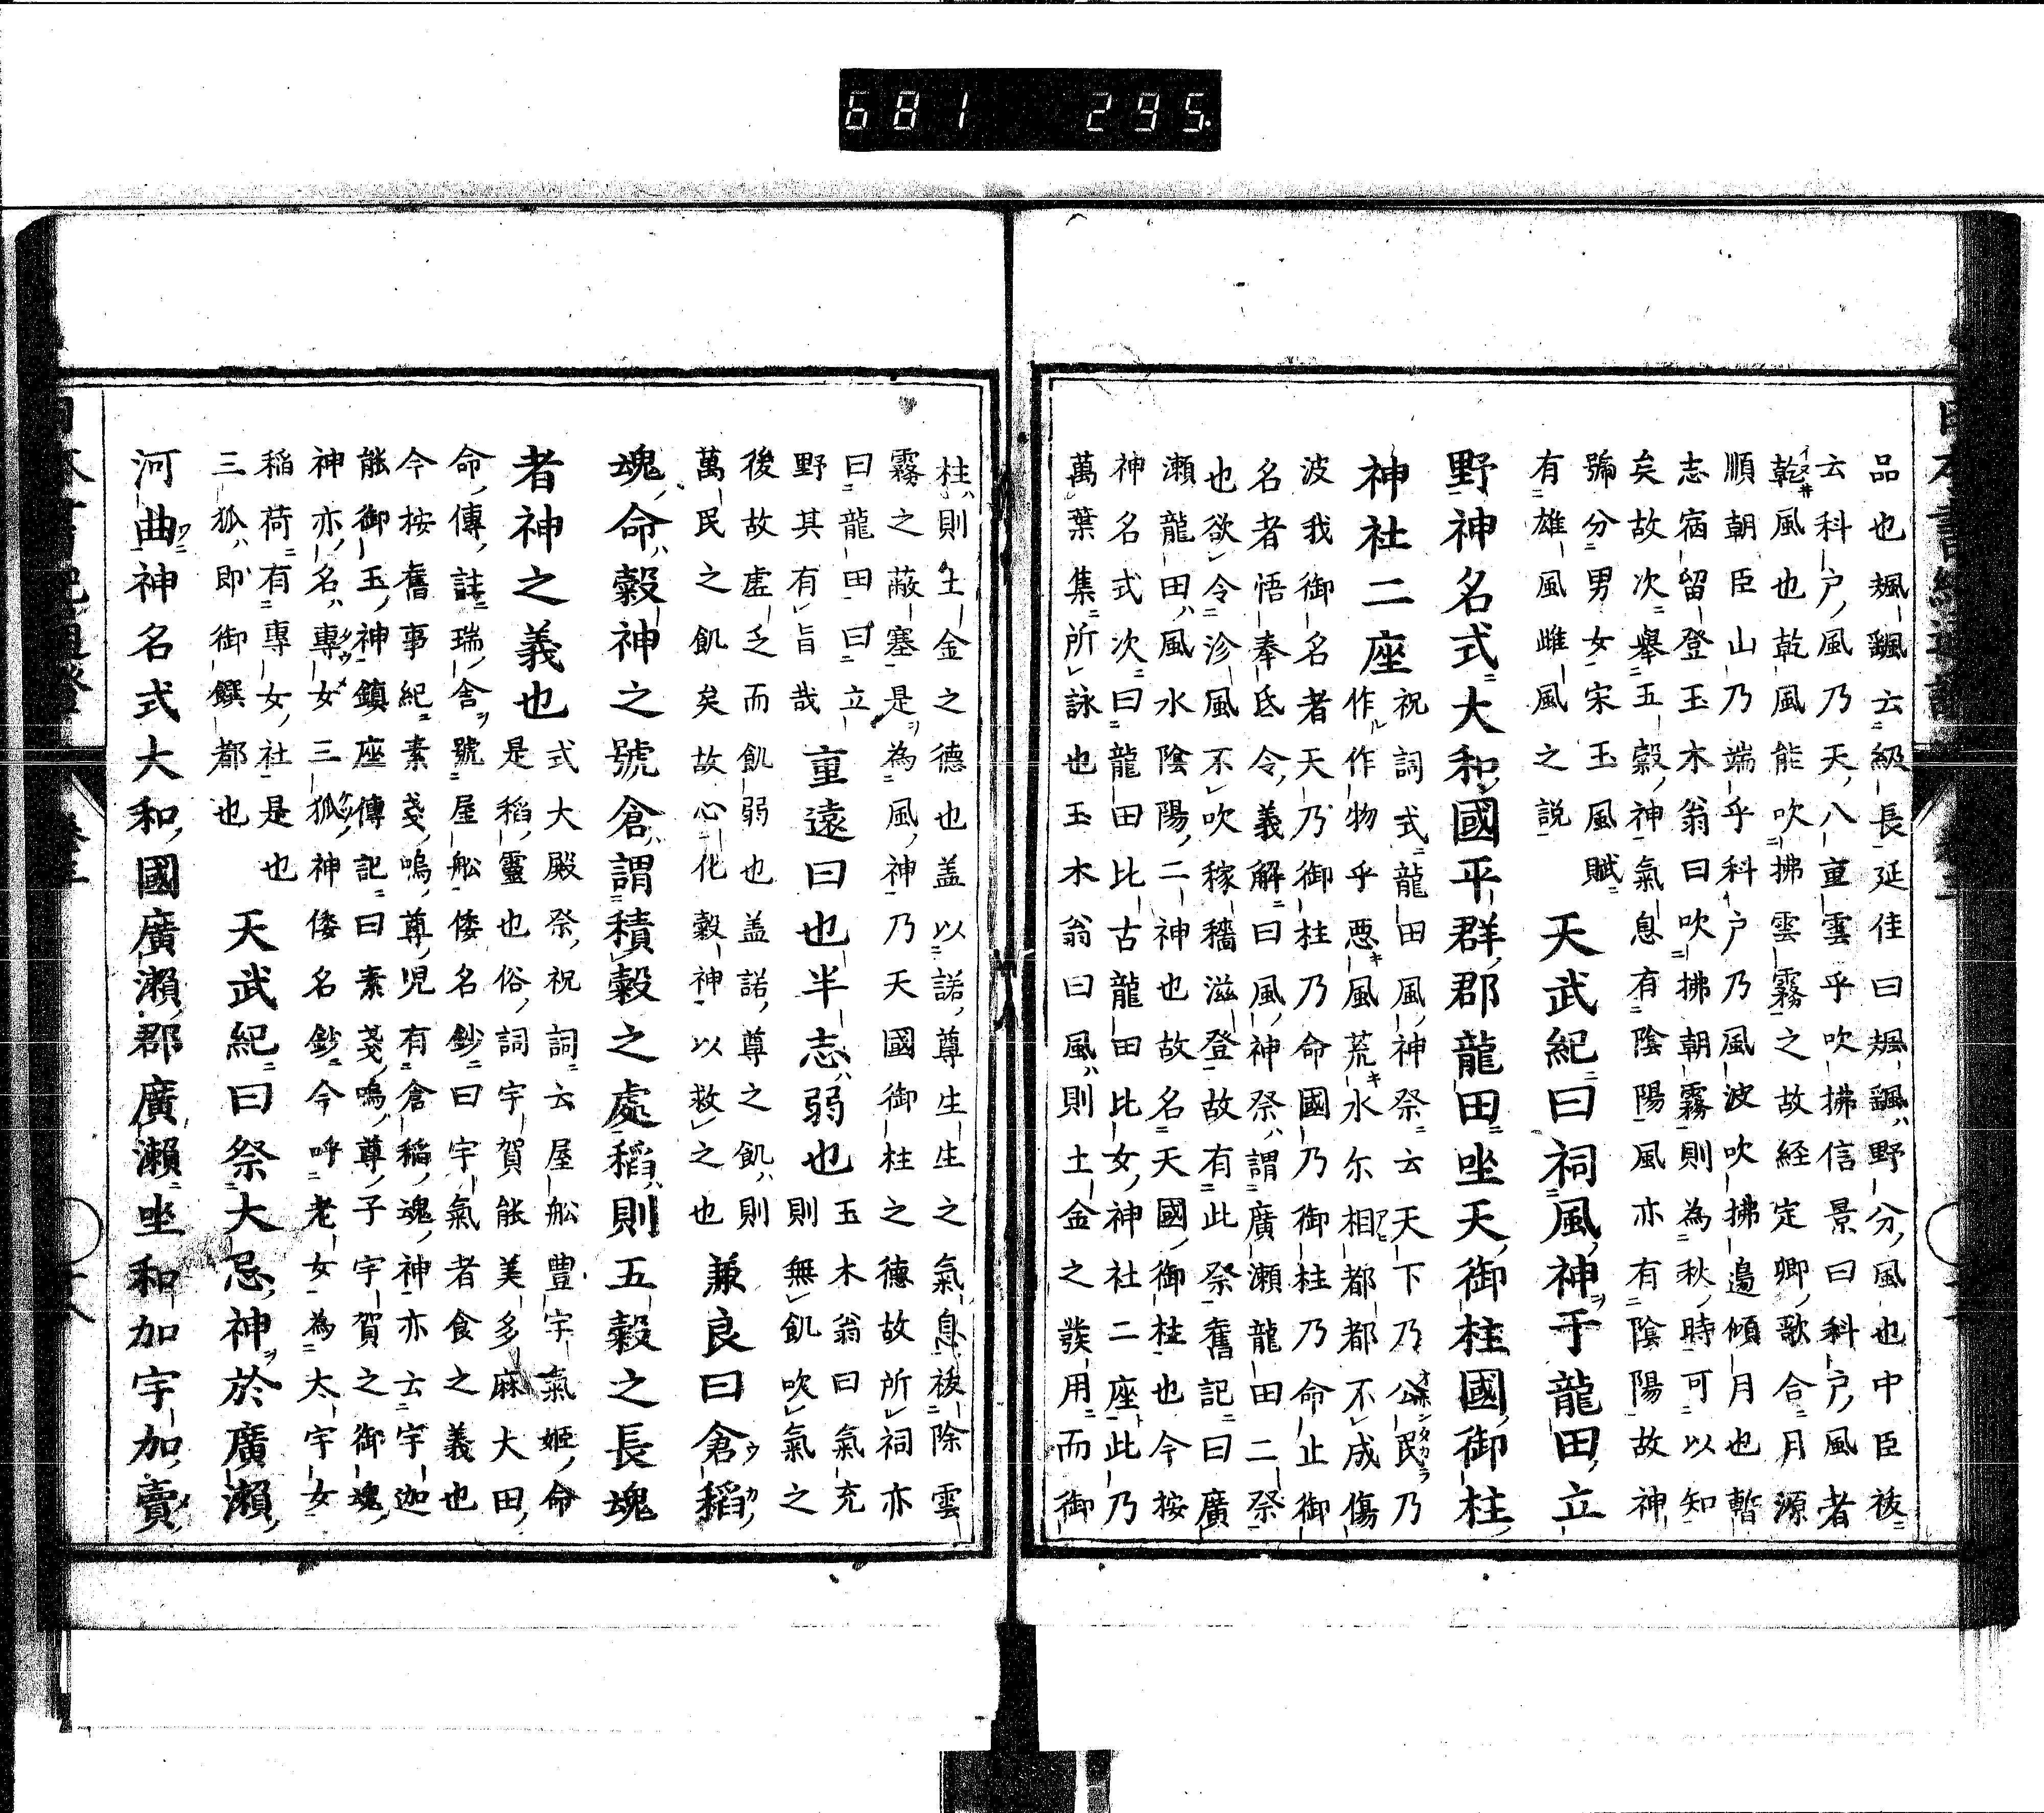 品也云級長延佳曰野分風也中臣祓
云科戸風乃天八重雲乎吹拂信景曰科戸風者
乾風也乾風能吹拂雲霧之故経定卿歌合月源
順朝臣山乃端乎科戸乃風波吹拂邉傾月也暫
志病留登玉木翁曰吹拂朝霧則為秋時可以知
矣故次擧五穀神氣息有陰陽風亦有陰陽故神
號分男女宋玉風賦
有雄風雌風之説
天武紀曰祠風神于龍田立
野神名式大和國平群郡龍田坐天御柱國御柱
神社二座
祝詞式龍田風神祭云天下乃公民乃
作作物乎悪風荒水尓相都都不成傷
波我御名者天乃御柱乃命國乃御柱乃命止御
名者悟奉氐令義解曰風神祭謂廣瀬龍田二祭
也欲令沴風不吹稼穡滋登故有此祭舊記曰廣
瀬龍田風水陰陽二神也故名天國御柱也今按
神名式次曰龍田比古龍田比女神社二座此乃
萬葉集所詠也玉木翁曰風則土金之發用而御
柱則生金之德也盖以諾尊生生之氣息祓除雲
霧之蔽塞是為風神乃天國御柱之德故所祠亦
曰龍田曰立
野其有旨哉
重遠曰也半志弱也
玉木翁曰氣充
則無飢吹氣之
後故虚乏而飢弱也盖諾尊之飢則
萬民之飢矣故心化穀神以救之也
兼良曰倉稻
魂命穀神之號倉謂積穀之處稻則五穀之長魂
者神之義也
式大殿祭祝詞云屋舩豊宇氣姬命
是稻靈也俗詞宇賀能美多麻大田
命傳註瑞舎號屋舩倭名鈔曰宇氣者食之義也
今按舊事紀素戔嗚尊児有倉稻魂神亦云宇迦
能御玉神鎮座傳記曰素戔嗚尊子宇賀之御魂
神亦名專女三狐神倭名鈔今呼老女為太宇女
稲荷有專女社是也
三狐即御饌都也
天武紀曰祭大忌神於廣瀬
河曲神名式大和國廣瀬郡廣瀬坐和加宇加賣
681 295.